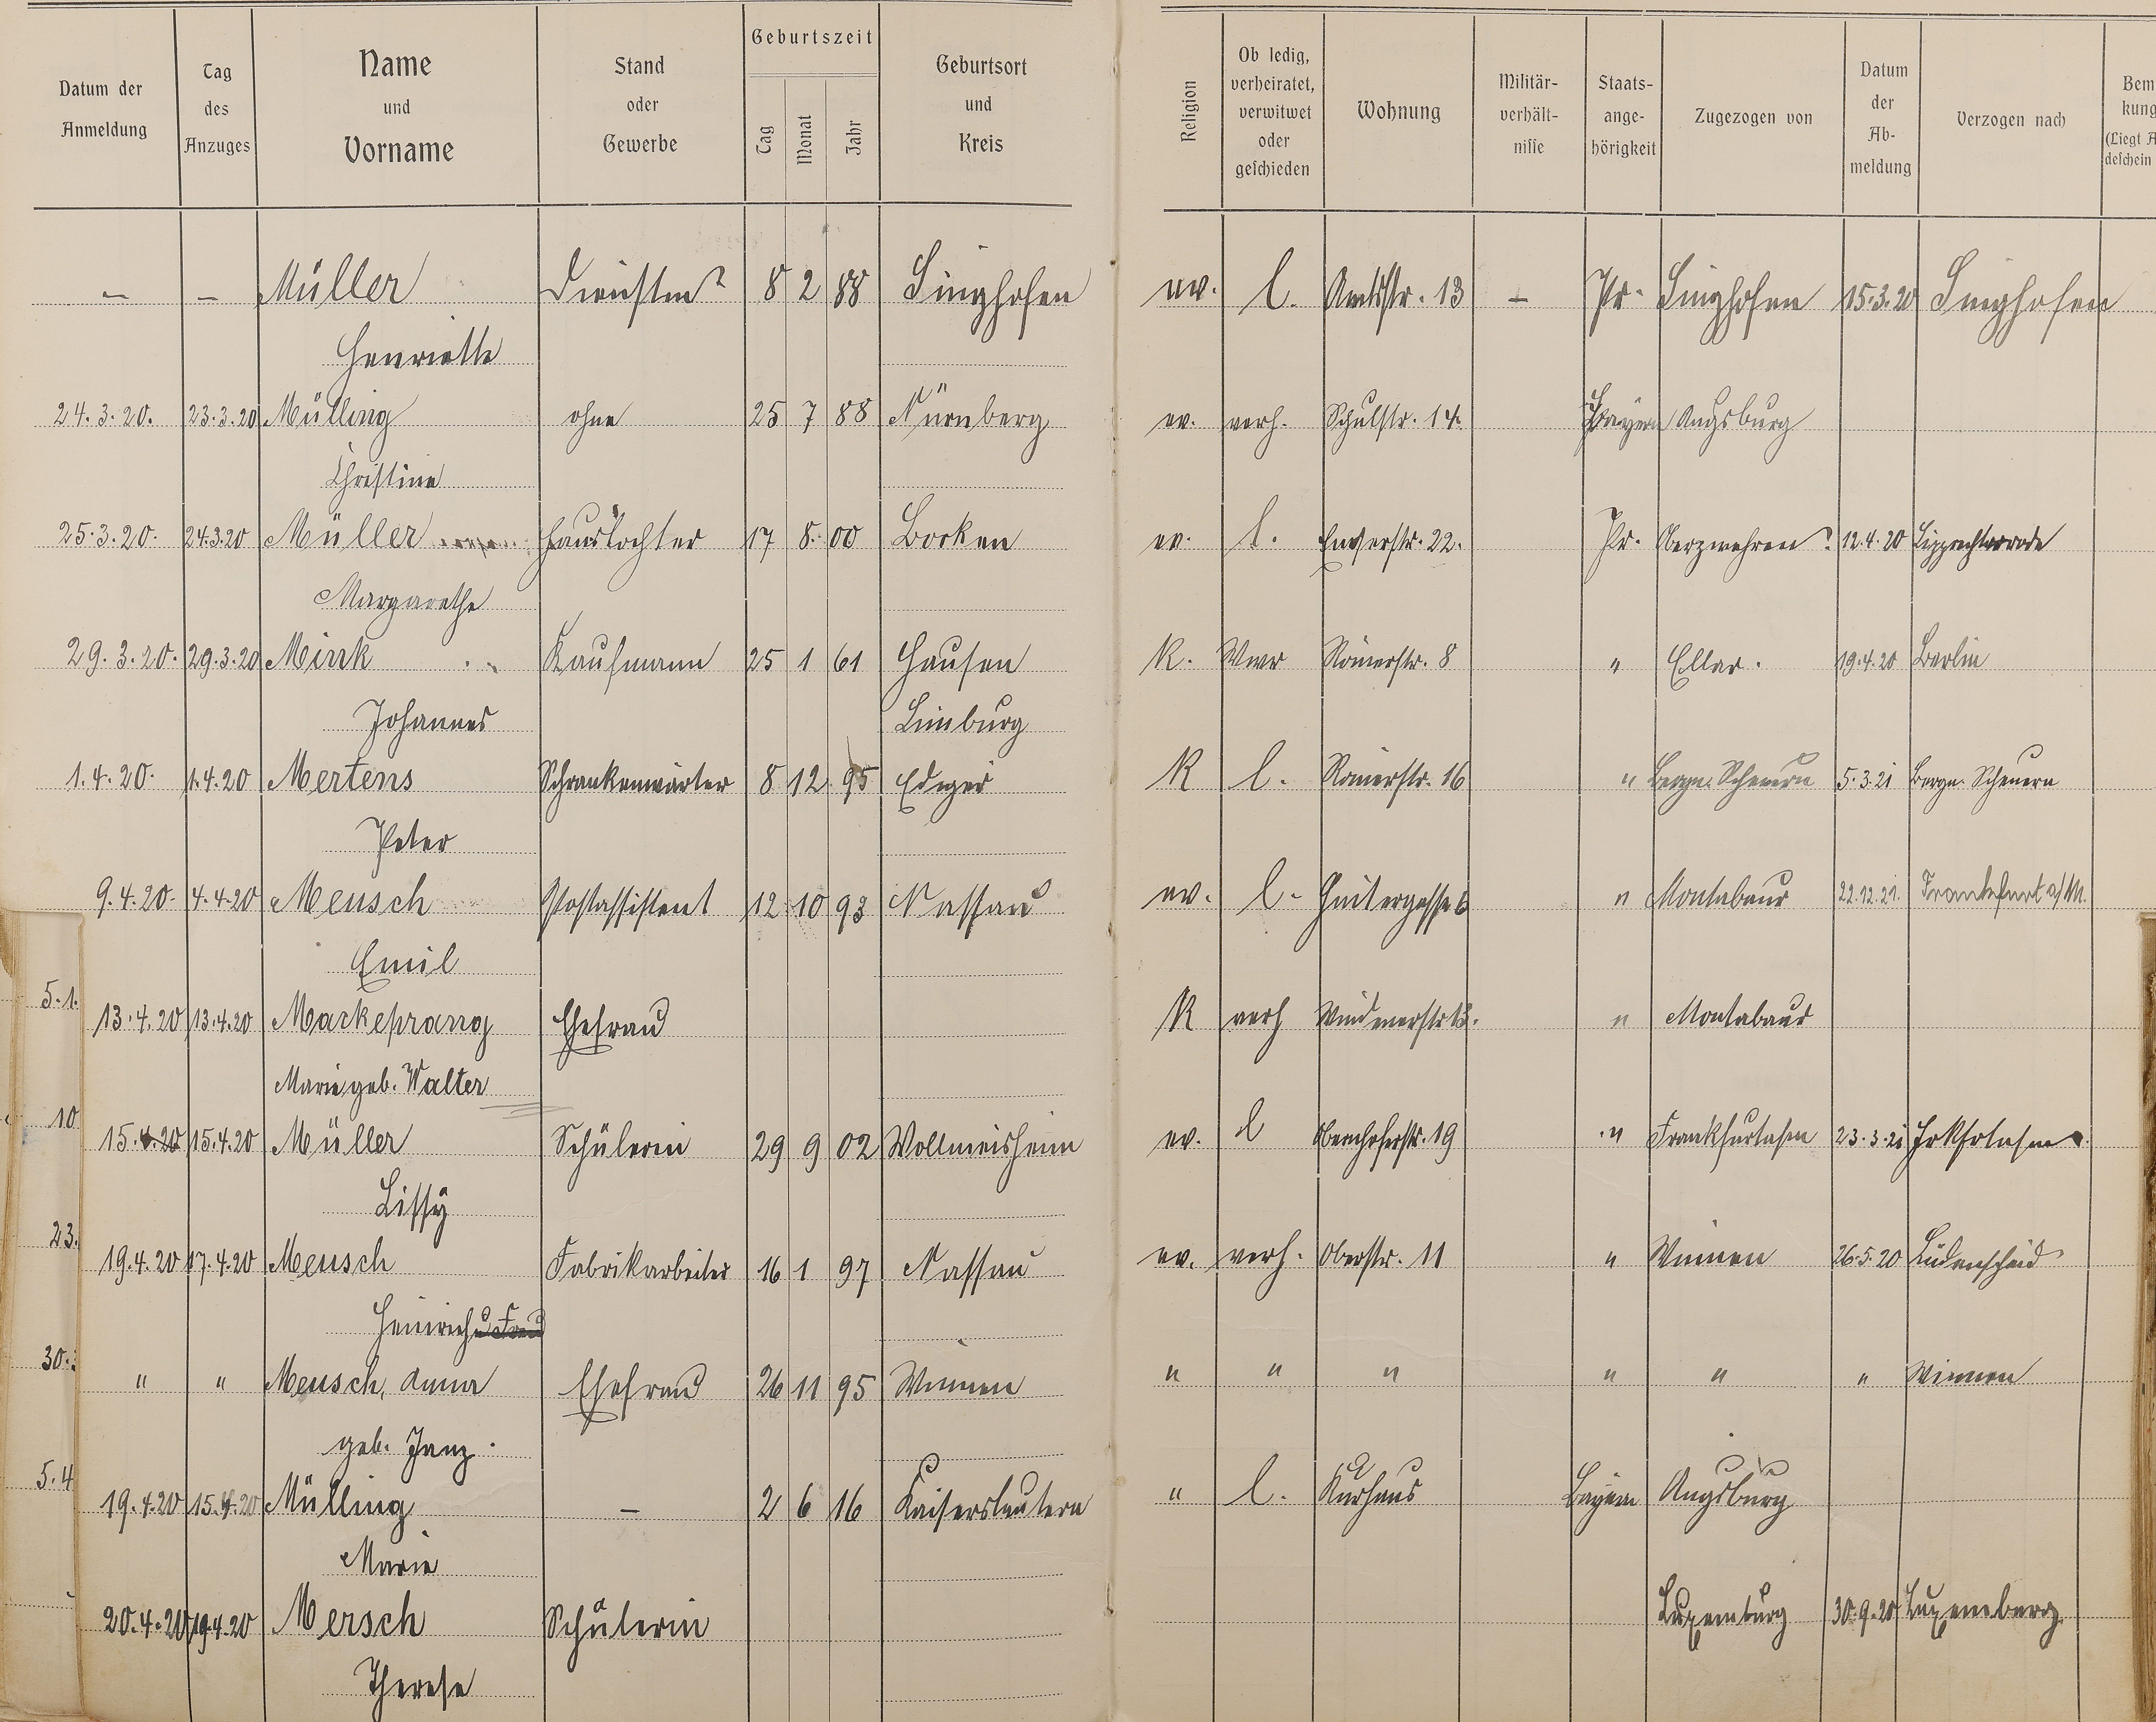 Datum der Anmeldung | Tag des Anzuges | Name und Vorname | Stand oder Gewerbe | Geburtszeit Tag Monat Jahr | Geburtsort und Kreis | Religion | Ob ledig, verheiratet, verwitwet oder geschieden | Wohnung | Militär-verhält-nisse | Staats-ange-hörigkeit | Zugezogen von | Datum der Ab-meldung | Verzogen nach | Bem kung (Liegt A deschein
– – Müller Dienstm. 8 2 88 Singhofen ev. l. Amtsstr. 13 – Pr. Singhofen 15.3.20 Singhofen
Henriette
24.3.20. 23.3.20 Mülling ohne 25 7 88 Nürnberg ev. verh. Schulstr. 14. Bayern Augsburg
Christine
25.3.20. 24.3.20 Müller Haustochter 17 8. 00 Borken ev. l. Emserstr. 22. Pr. Oberzwehren 12.4.20 Lipprechterode
Margarethe
29.3.20. 29.3.20 Mink Kaufmann 25 1 61 Hausen K. Wwr Römerstr. 8 " Ellar. 19.4.20 Berlin
Johannes Limburg
1.4.20. 1.4.20 Mertens Schrankenwärter 8 12 95 Ediger K l. Römerstr. 16 " Bergn. Scheuern 5.3.21 Bergn. Scheuern
Peter
9.4.20. 4.4.20 Meusch Postassistent 12 10 93 Nassau ev. l. Guitergasse 6 " Montabaur 22.12.21. Frankfurt a/M.
Emil
5.1.
13.4.20 13.4.20 Mackeprang Ehefrau K verh " Montabaur
Marie geb. Walter
10
15.4.20 15.4.20 Müller Schülerin 29 9 02 Wollmeisheim ev. l Obernhoferstr. 19 " Frankfurt a/m 23.3.21 Frkfrt a/m
Lissy
23.
19.4.20 17.4.20 Meusch Fabrikarbeiter 16 1 97 Nassau ev. verh. Oberstr. 11 " Winnen 26.5.20 Lüdenscheid
Heinrich u Frau
30.
" " Meusch, Anna Ehefrau 26 11 95 Winnen " " " " " " Winnen
geb. Janz.
5.4
19.4.20 15.4.20 Mülling – 2 6 16 Kaiserslautern " l. Kurhaus Bayern Augsburg
Marie
20.4.20 19.4.20 Mersch Schülerin Luxemburg 30.9.20 Luxemburg
Therese